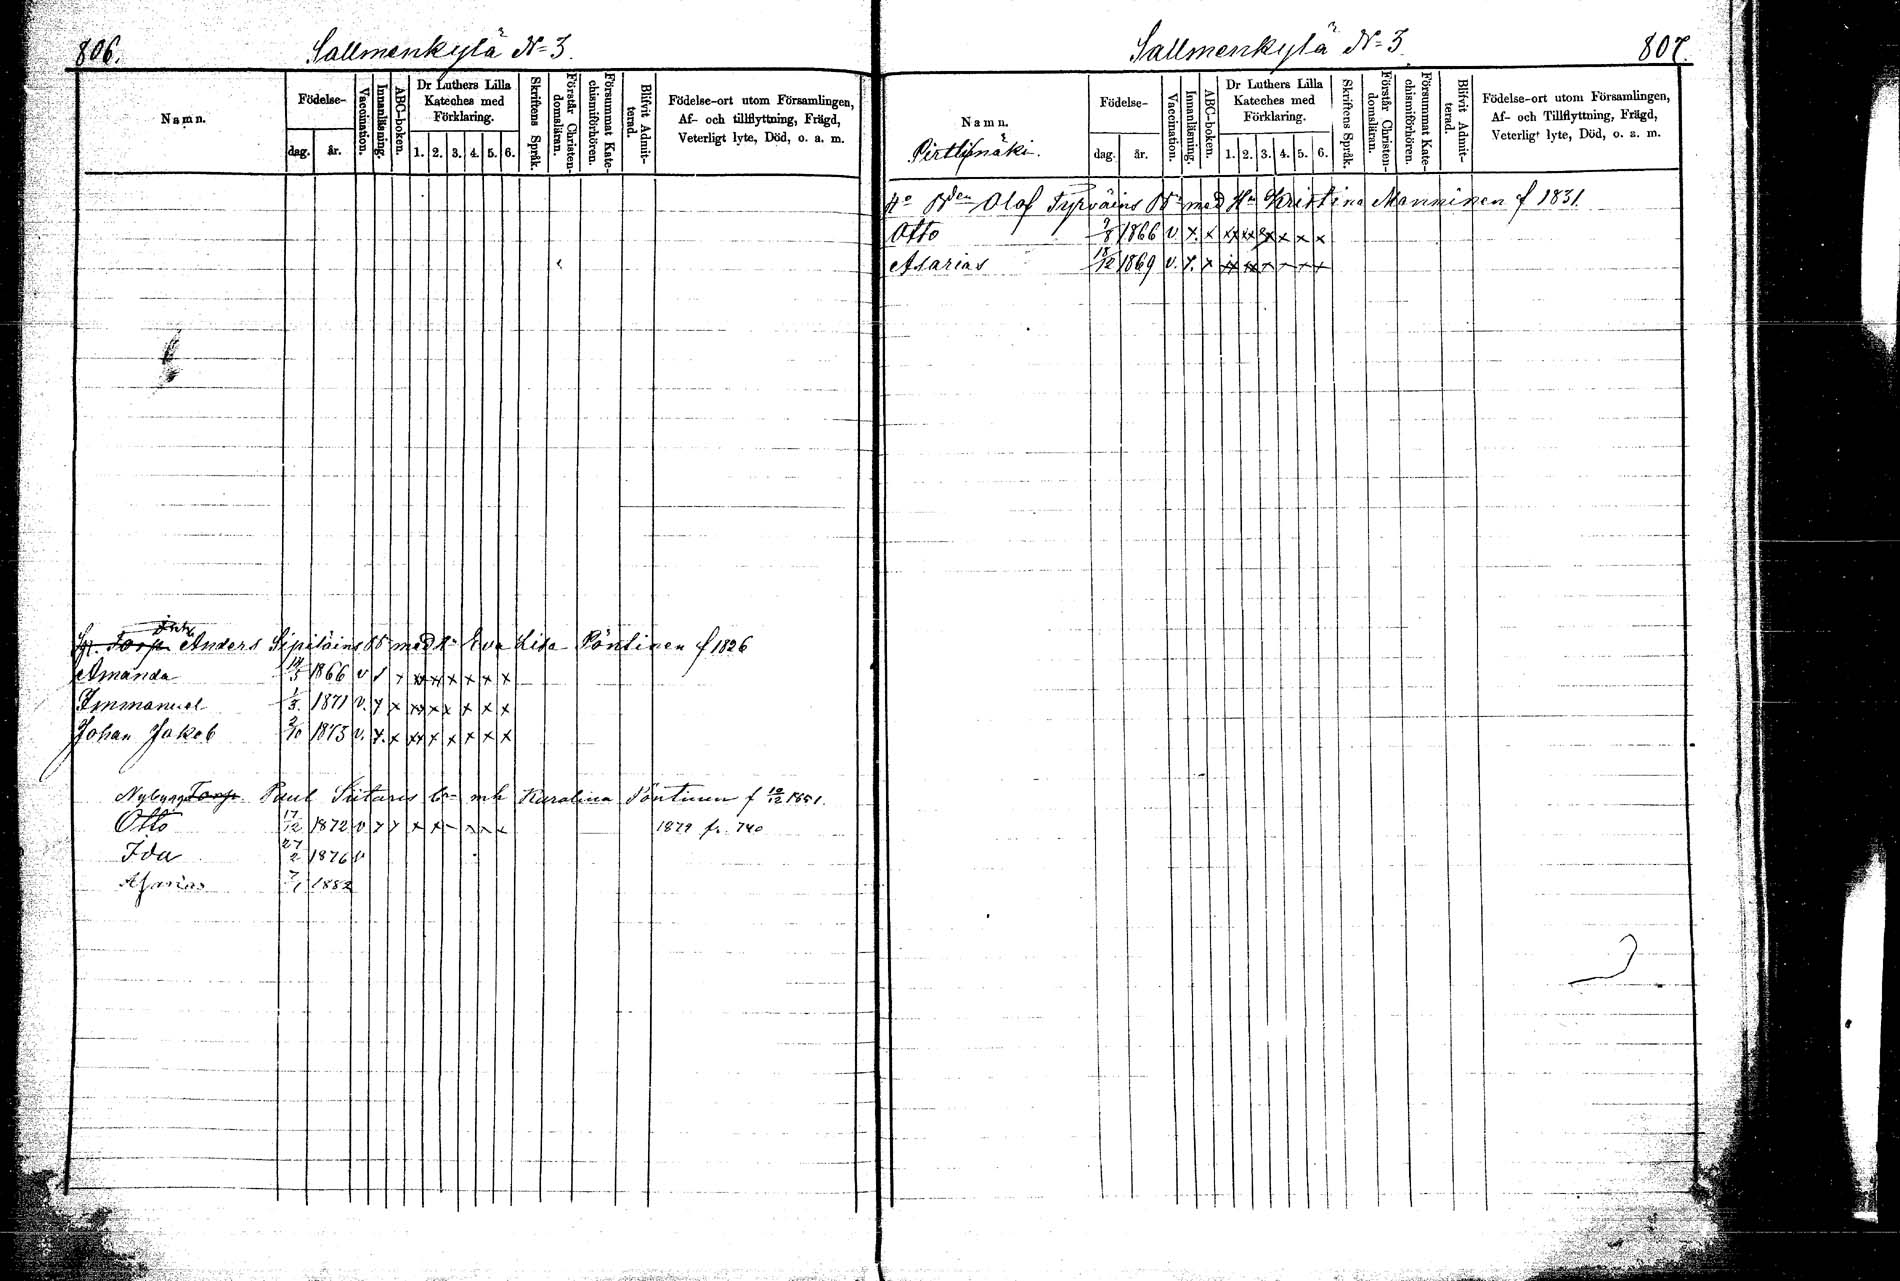 806.
Sallmenkylä N=3.
Namn.
Födelse-
dag.
år.
Vaccination.
Innanläsning.
ABC-boken.
Dr Luthers Lilla
Kateches med
Förklaring.
1. 2. 3. 4. 5. 6.
Skriftens Språk.
Förstår Christen-
domsläran.
Försummat Kate-
chismiförhören.
Blifvit Admit-
terad.
Födelse-ort utom Församlingen,
Af- och tillflyttning, Frägd,
Veterligt lyte, Död, o. a. m.
Torp Anders Sipiläins med Eva Lisa Pöntinen f 1826
Amanda 14/5 1866 v x x xx xx x x x x
Immanuel 1/3. 1871 v. x x xx x x x x x
Johan Jakob 2/10 1873 v. x. x xx x x x x x
Nybygg Torp Paul Siitaris mh Karolina Pöntinen f 10/12 1851.
Otto 17/12 1872 v x x x x - x x x 1879 fr. 740
Ida 27/2 1876 v
Asarias 7/1 1882
Sallmenkylä N=3
807.
Namn.
Pirttimäki.
Födelse-
dag.
år.
Vaccination.
Innanläsning.
ABC-boken.
Dr Luthers Lilla
Kateches med
Förklaring.
1. 2. 3. 4. 5. 6.
Skriftens Språk.
Förstår Christen-
domsläran.
Försummat Kate-
chismiförhören.
Blifvit Admit-
terad.
Födelse-ort utom Församlingen,
Af- och Tillflyttning, Frägd,
Veterligt lyte, Död, o. a. m.
Olof Tyrväins med Hu Kristina Manninen f 1831
Otto 9/8 1866 v x. x xx xx x x x x
Asarias 15/12 1869 v. x. x xx xx x x x x